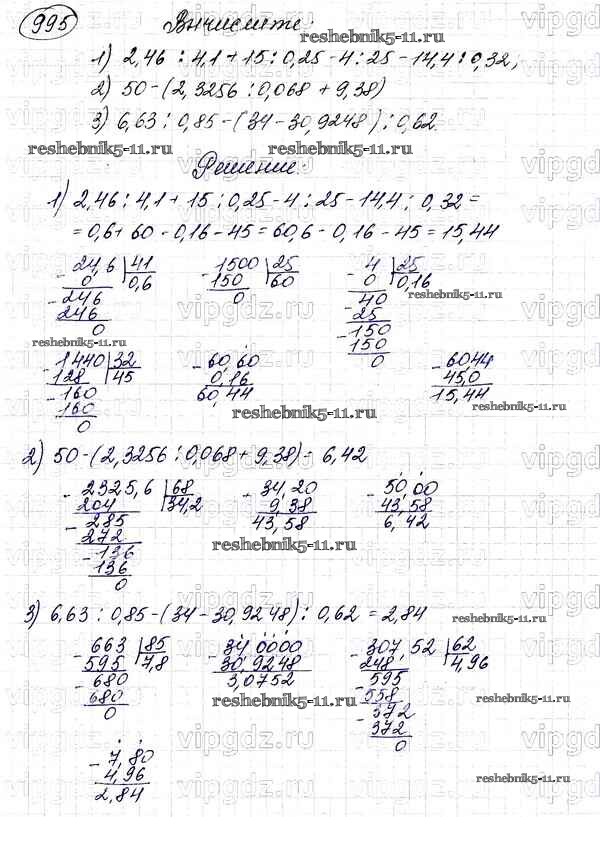 995 Вычислите:
reshebnik5-11.ru
1) 2,46 : 4,1 + 15 : 0,25 - 4 : 25 - 14,4 : 0,32;
2) 50 - (2,3256 : 0,068 + 9,38)
3) 6,63 : 0,85 - (34 - 30,9248) : 0,62.
reshebnik5-11.ru reshebnik5-11.ru
Решение:
1) 2,46 : 4,1 + 15 : 0,25 - 4 : 25 - 14,4 : 0,32 =
= 0,6 + 60 - 0,16 - 45 = 60,6 - 0,16 - 45 = 15,44
- 24,6 | 41 - 1500 | 25 - 4 | 25
0 0,6 150 60 0 0,16
- 246 0 - 40
246 25
0 - 150
150
0
reshebnik5-11.ru
reshebnik5-11.ru
- 1440 | 32 - 60,60 - 60,44
128 45 0,16 45,0
- 160 60,44 15,44
160
0
reshebnik5-11.ru
2) 50 - (2,3256 : 0,068 + 9,38) - 6,42
- 2325,6 | 68 - 34,20 - 50,00
204 34,2 9,38 43,58
- 285 43,58 6,42
272
- 136
136
0
reshebnik5-11.ru
3) 6,63 : 0,85 - (34 - 30,9248) : 0,62 = 2,84
reshebnik5-11.ru
- 663 | 85 - 34,0000 - 307,52 | 62
595 7,8 30,9248 248 4,96
- 680 3,0752 - 595
680 558
0 - 372
372
0
reshebnik5-11.ru
reshebnik5-11.ru
- 7,80
4,96
2,84
reshebnik5-11.ru
vipgdz.ru